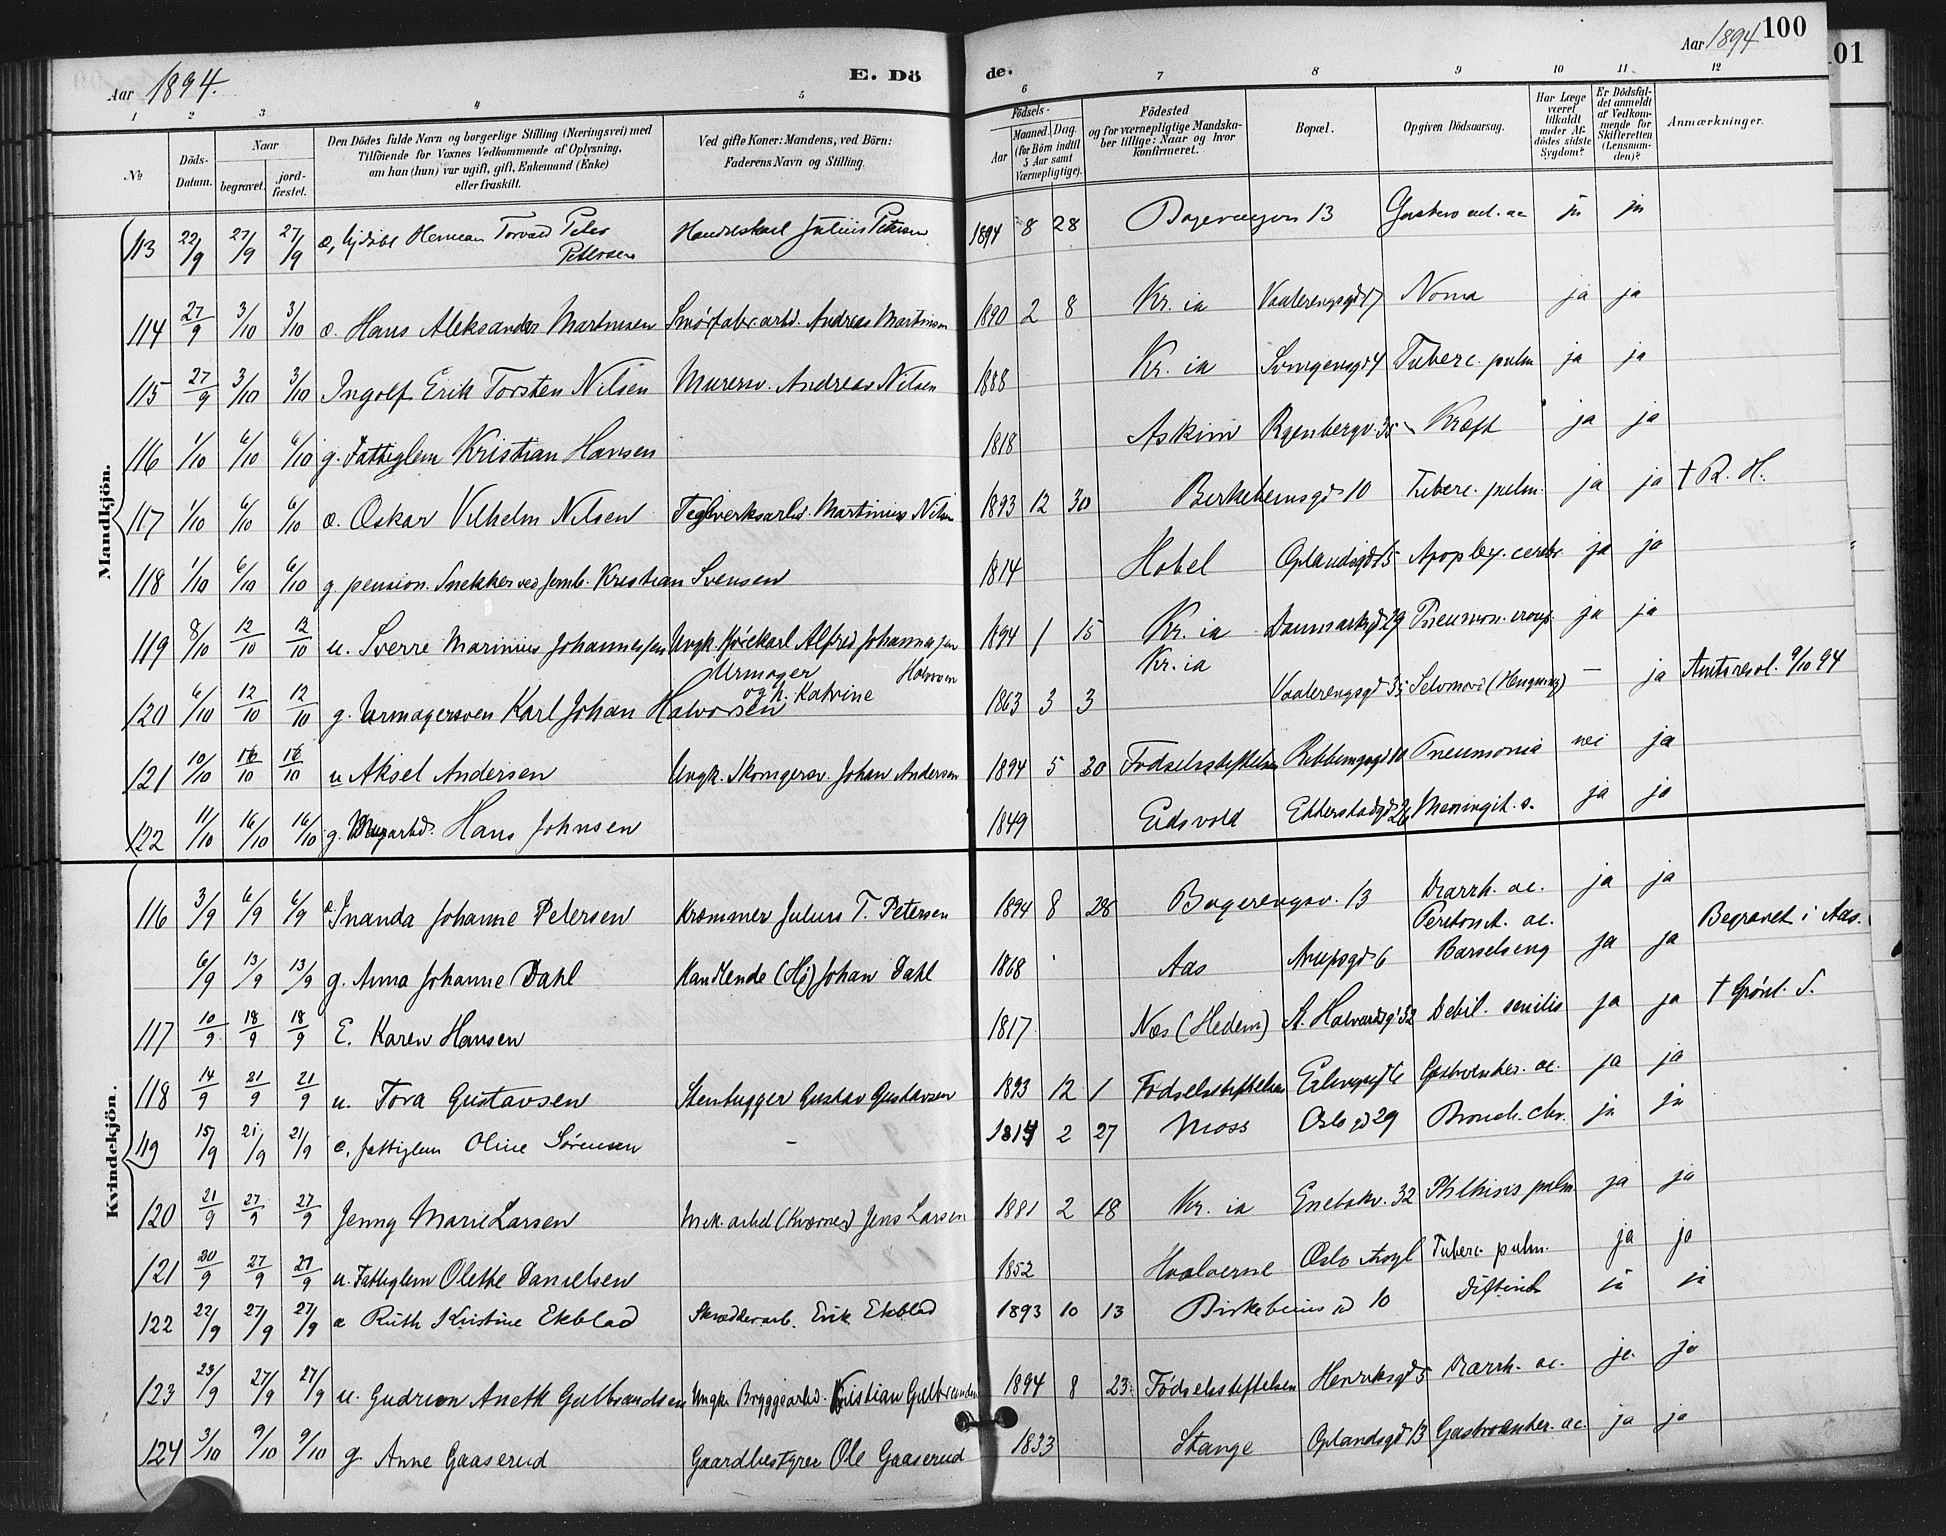 Aar 1894. E. Dö
de. Aar 1894 100
01
1 2 3 4 5 6 7 8 9 10 11 12
№ Döds-Datum. Naar begravet. jord-fæstet. Den Dödes fulde Navn og borgerlige Stilling (Næringsvei) med Tilföiende for Voxnes Vedkommende af Oplysning, om han (hun) var ugift, gift, Enkemand (Enke) eller fraskilt. Ved gifte Koner: Mandens, ved Börn: Faderens Navn og Stilling. Födsels- Aar Maaned. Dag. (for Börn indtil 5 Aar samt Værnepligtige). Födested og for værnepligtige Mandskaber tillige: Naar og hvor konfirmeret. Bopæl. Opgiven Dödsaarsag. Har Læge været tilkaldt under Afdödes sidste Sygdom? Er Dödsfaldet anmeldt af Vedkommende for Skifteretten (Lensmanden)? Anmærkninger.
Mandkjön.
113 22/9 27/9 27/9 Herman Torvald Peter Petersen Handelskarl Julius Petersen 1894 8 28 13 ja ja
114 27/9 3/10 3/10 æ. Hans Aleksander Martinsen Smörfabr.arbd. Andreas Martinsen 1890 2 8 Kr. ia Vaalerengsgd 17 Noma ja ja
115 27/9 3/10 3/10 Ingolf Erik Torsten Nilsen Murersv. Andreas Nilsen 1888 Kr. ia Tuberc. pulm ja ja
116 1/10 6/10 6/10 g. Fattiglem Kristian Hansen 1818 Askim Ryenbergv. 35 Kræft ja ja
117 1/10 6/10 6/10 æ. Oskar Vilhelm Nilsen Teglverksarbd. Martinius Nilsen 1893 12 30 Birkebeinsgd 10 Tuberc. pulm. ja ja † R. H.
118 1/10 6/10 6/10 g pension. Snekker ved Jernb. Kristian Svensen 1814 Hobel Oplandsgd 15 Apoplex. cerebr ja ja
119 8/10 12/10 12/10 u. Sverre Marinius Johannessen Ungk. Kjörekarl Alfred Johannessen 1894 1 15 Kr. ia Danmarksgd 29 Pneumon. croup. ja ja
120 6/10 12/10 12/10 g. Urmagersven Karl Johan Halvorsen Urmager Halvorsen og h. Katrine 1863 3 3 Kr. ia Vaalerengsgd 35 Selvmord (Hengning) — ja Amtsresol. 9/10 94
121 10/10 16/10 16/10 u Aksel Andersen Ungk. Skomgersv. Johan Andersen 1894 5 30 Födselsstiftelsen Pneumonia nei ja
122 11/10 16/10 16/10 g. Hans Johnsen 1849 Eidsvold Etterstadgd 26 Meningit. s. ja ja
Kvindekjön.
116 3/9 6/9 6/9 æ Inanda Johanne Petersen Kræmmer Julius T. Petersen 1894 8 28 Bagerengsv. 13 Diarrh. ac. Peritonit. ac. ja ja
6/9 13/9 13/9 g. Anna Johanne Dahl Handlende (Hö) Johan Dahl 1868 Aas Arupsgd 6 Barselseng ja ja Begravet i Aas.
117 10/9 18/9 18/9 E. Karen Hansen 1817 Næs (Hedem) St. Halvardsgd 32 Debil. senilis ja ja † Grönl. S.
118 14/9 21/9 21/9 u. Tora Gustavsen Stenhugger Gustav Gustavsen 1893 12 1 Födselsstiftelsen Gastroenter. ac. ja ja
119 15/9 21/9 21/9 e. fattiglem Oline Sörensen – 1814 2 27 Moss Oslo gd 29 Bronch. chr. ja ja
120 21/9 27/9 27/9 Jenny Marie Larsen Mek. arbd (Kværner) Jens Larsen 1881 2 18 Kr. ia Enebakv. 32 Phthisis pulm. ja ja
121 20/9 27/9 27/9 u. Fattiglem Olette Danielsen 1852 Hvalöerne Oslo Asyl Tuberc. pulm. ja ja
122 22/9 27/9 27/9 æ Ruth Kristine Ekblad Skrædderarb. Erik Ekblad 1893 10 13 Birkebeins gd 10 Difterit ja ja
123 23/9 27/9 27/9 u. Gudrun Aneth Gulbrandsen Ungk. Bryggearbd. Kristian Gulbrandsen 1894 8 23 Födselsstiftelsen Henriksgd 5 Diarrh. ac. ja ja
124 3/10 9/10 9/10 g Anne Gaaserud Gaardbestyrer Ole Gaaserud 1833 Stange Oplandsgd 13 Gastroenter. ac. ja ja